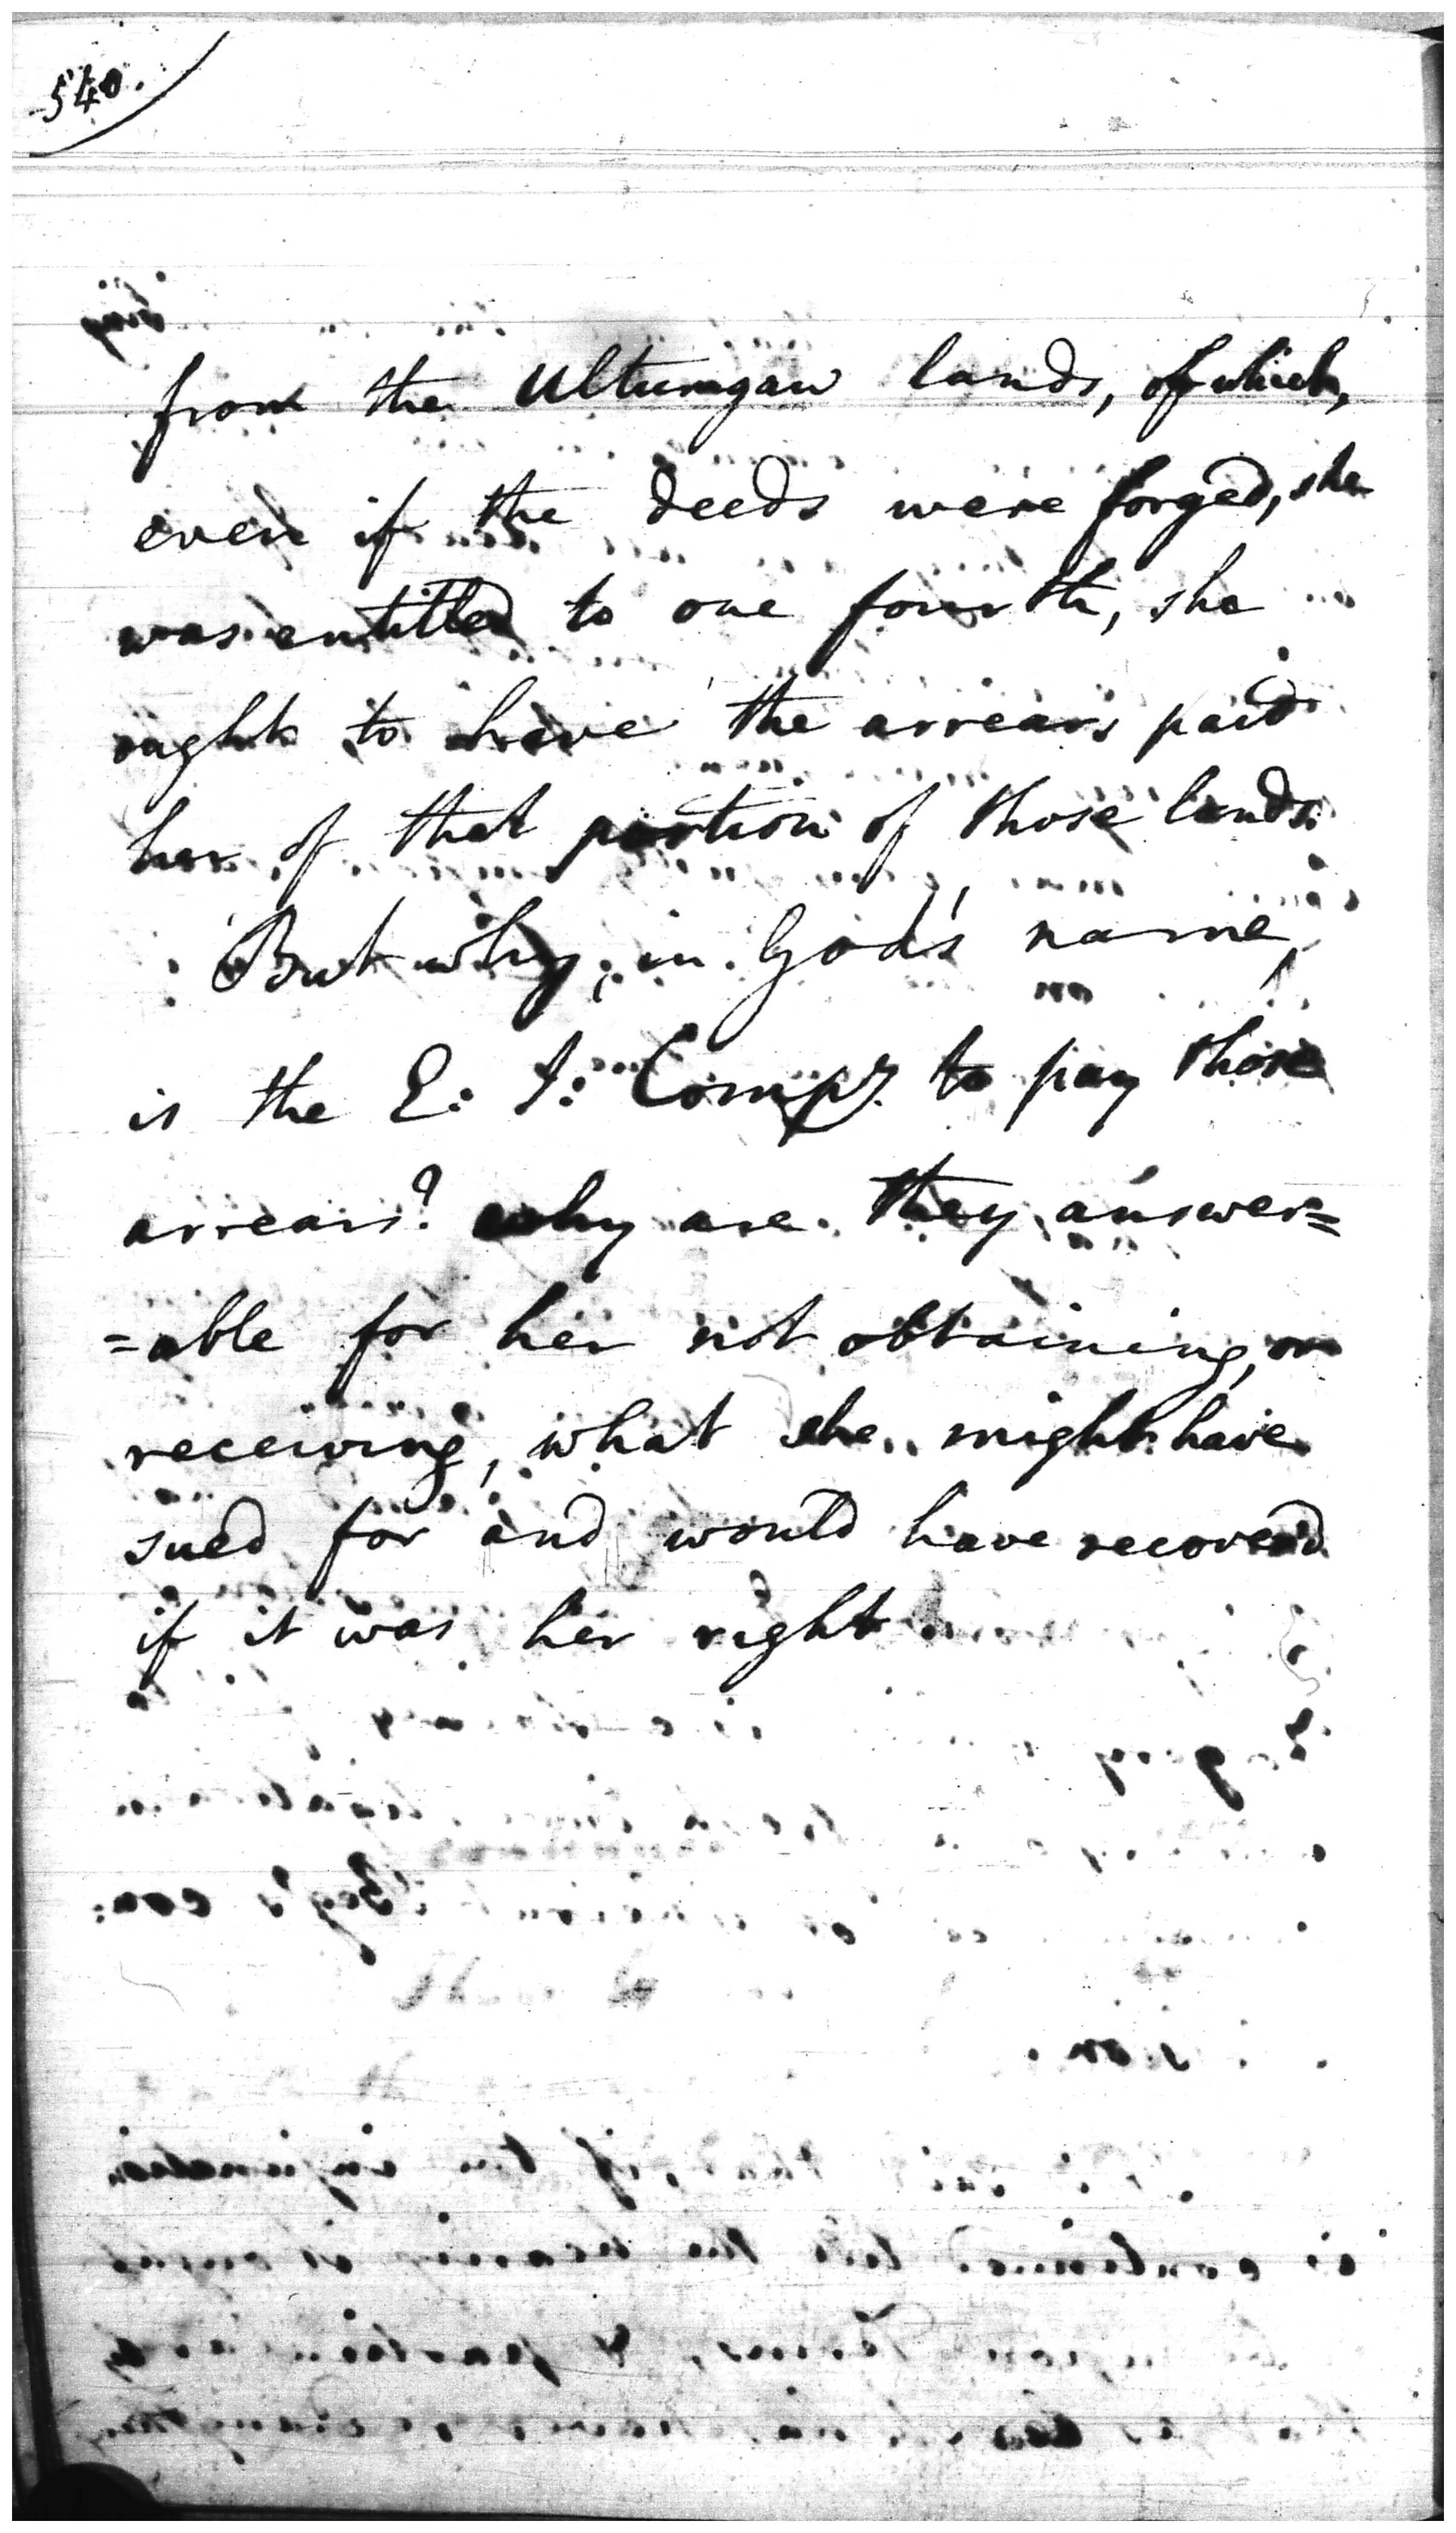 540.
from the Ultumgaw lands, of which,
even if the deeds were forged, she
was entitled to one fourth, she
ought to have the arrears paid
her, of that portion of those lands.
But why, in God's name,
is the E: I: Compy. to pay those
arrears? why are they answer=
=able for her not obtaining, or
receiving, what she might have
sued for and would have recoverd
if it was her right